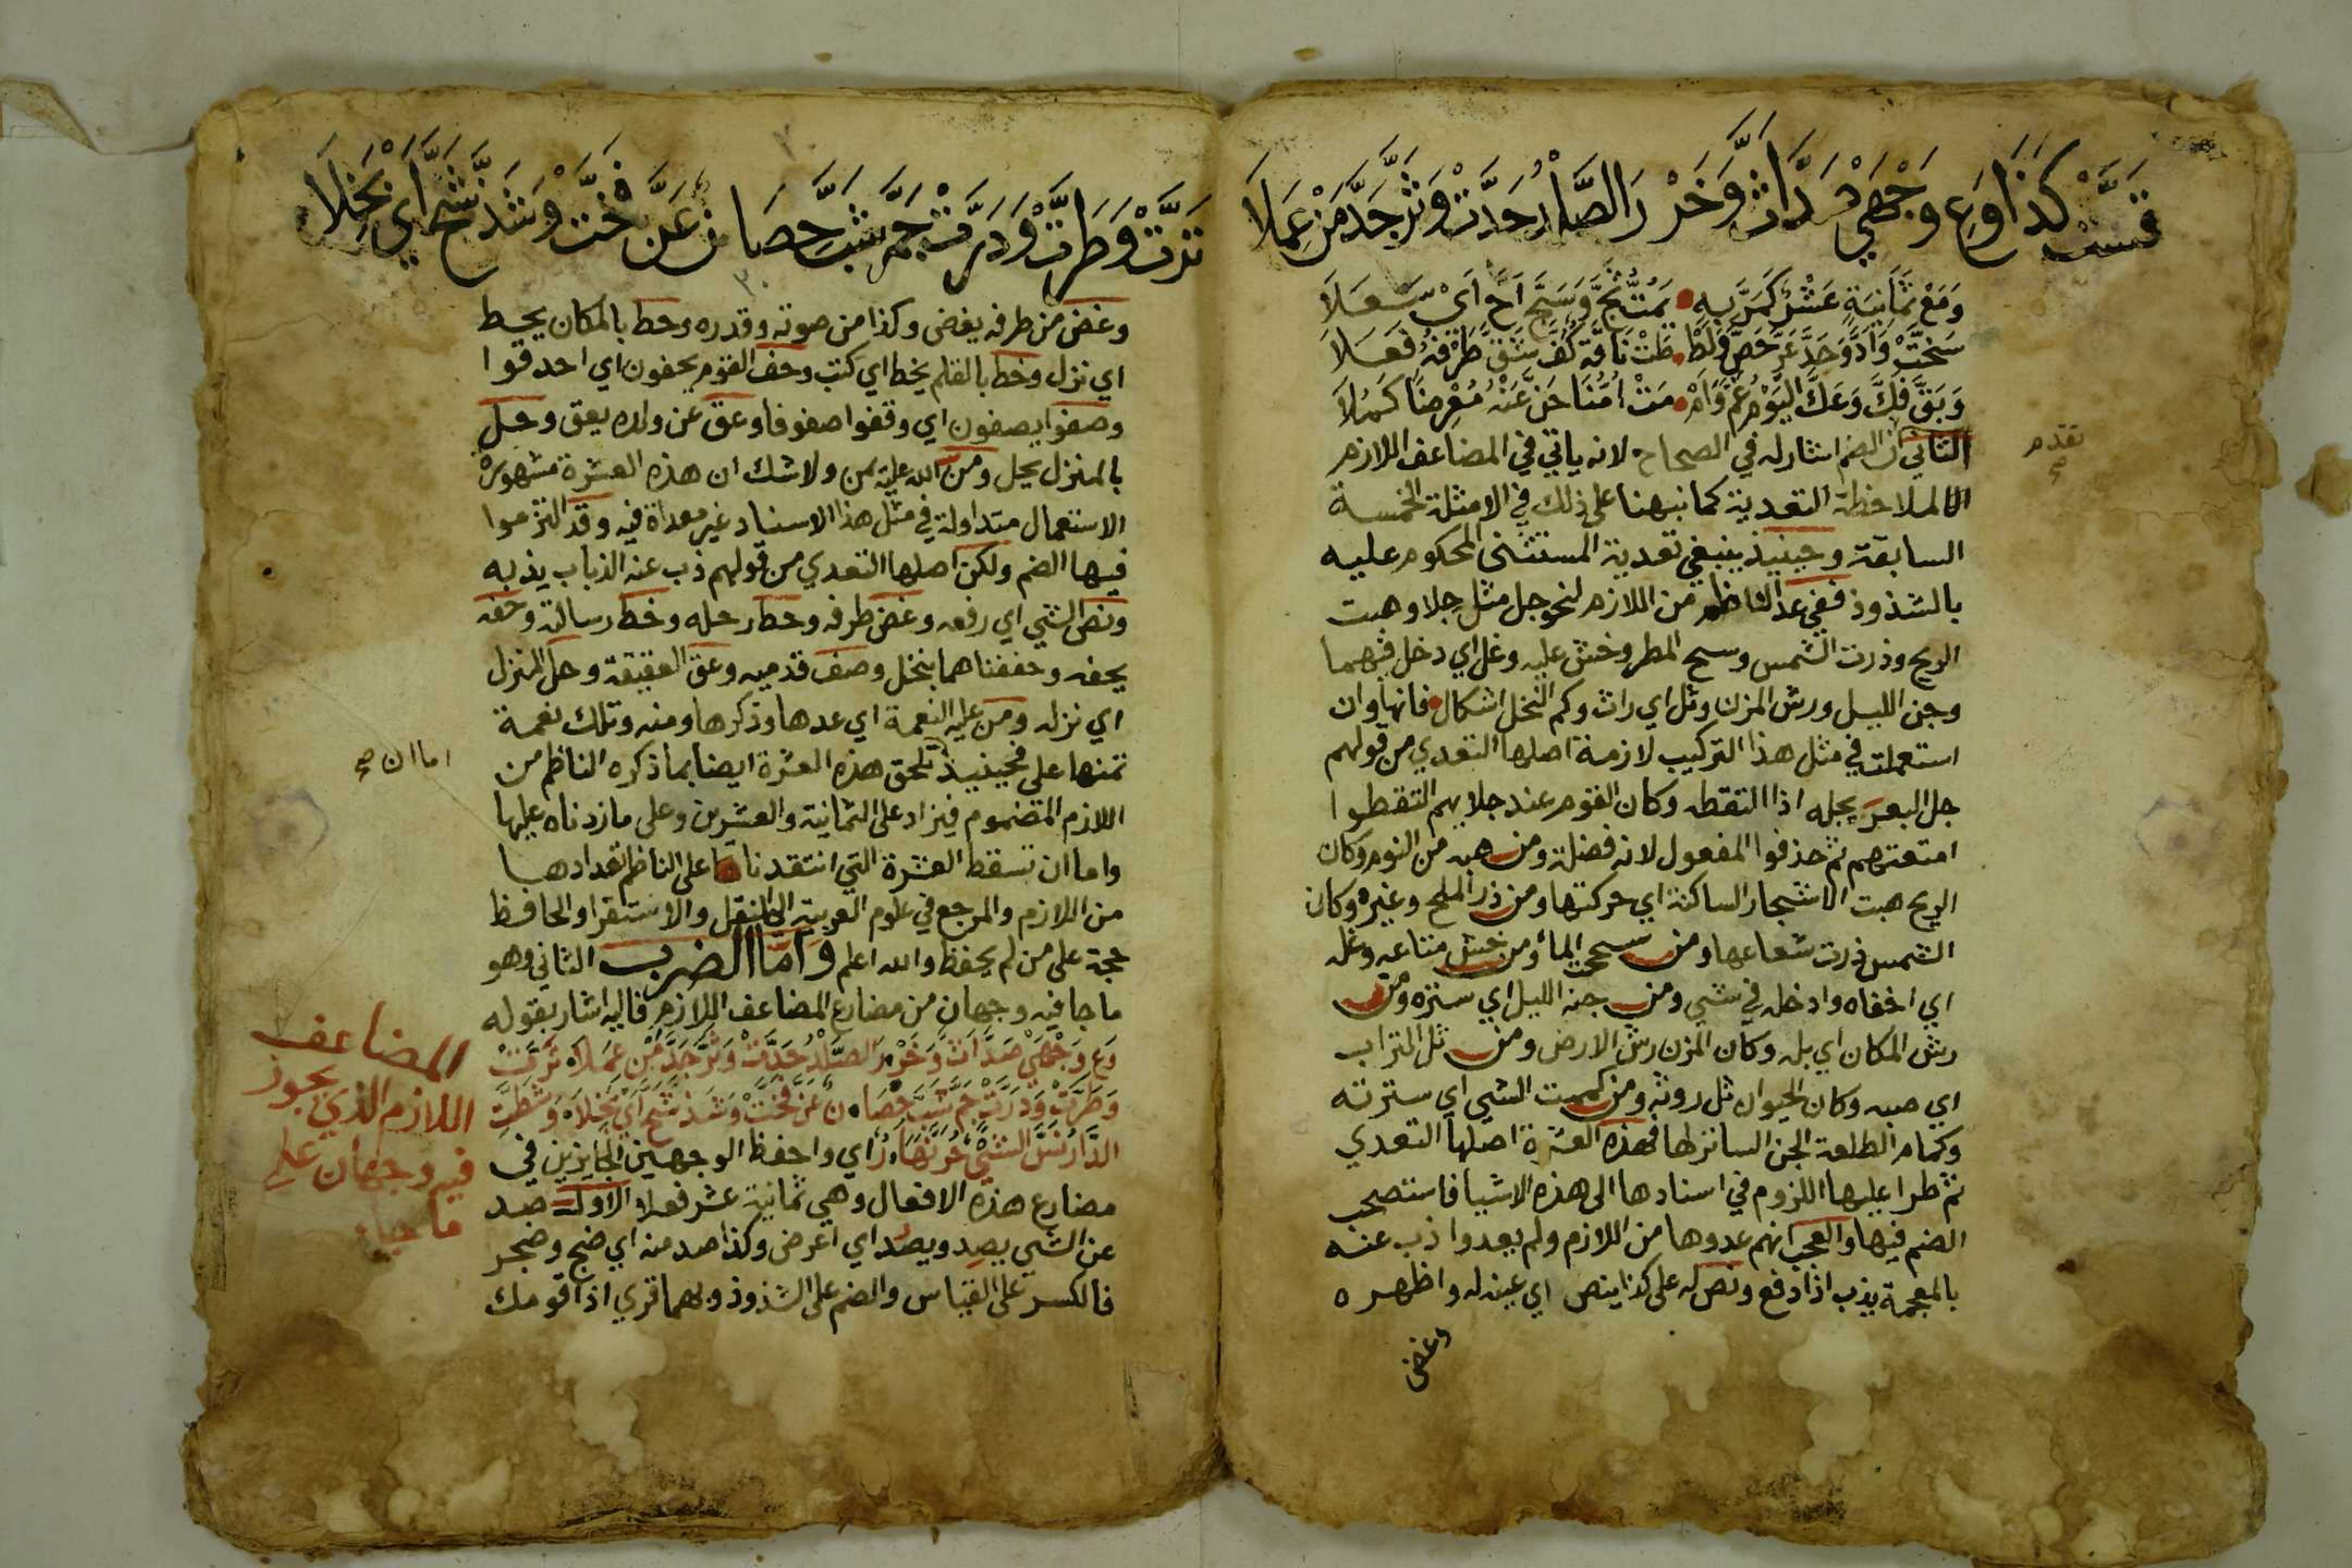 قَسَّتْ كَذَا وَعِ وَجْهَيْ صَدَّ اَثَّ وَخَرْ رَ الصَّلْدُ حَدَّتْ وَثَرَّ جَدَّ مَنْ عَمِلَا
وَمَعْ ثَمَانِيَةٍ عَشْرٌ كَمَرَّ بِهِ يَمُتُّ ثَجَّ وَسَجَّ اَحَّ اَيْ سَعَلَا
سَخَّتْ وَاَدَّ وَحَدَّ عَرَّ حَصَّ وَلَطَّ ظَتْ نَاقَةٌ كُفَّ شَقَّ طَرْفُهُ فَعَلَا
وَبَقَّ فَكَّ وَعَكَّ الْيَوْمُ غَمَّ وَاَمْ مَتْ اُمُّنَا حَنَّ عَنْهُ مُعْرِضًا كَمُلَا
الثاني ان الضم اشار له في الصحاح لانه ياتي في المضاعف اللازم
الا لملاحظة التعدية كما نبهنا على ذلك في الامثلة الخمسة
السابقة وحينيذ ينبغي تعدية المستثنى المحكوم عليه
بالشذوذ ففي عد الناظم من اللازم لنحو جل مثل جلا وهبت
الريح وذرت الشمس وسح المطر وخش عليه وغل اي دخل فيهما
وجن الليل ورش المزن وثل اي راث وكم النخل اشكال فانها وان
استعملت في مثل هذا التركيب لازمة اصلها التعدي من قولهم
جل البعر يجله اذا التقطه وكان القوم عند جلايهم التقطوا
امتعتهم ثم حذفوا المفعول لانه فضلة ومن هبه من النوم وكان
الريح هبت الاشجار الساكنة اي حركتها ومن ذر الملح وغيره وكان
الشمس ذرت شعاعها ومن سححت الماء ومن خش متاعه وغله
اي اخفاه وادخله في شي ومن جنه الليل اي ستره ومن
رش المكان اي بله وكان المزن رش الارض ومن ثل التراب
اي صبه وكان الحيوان ثل روثه ومن كممت الشي اي سترته
وكمام الطلعة الجن الساتر لها فهذه العشرة اصلها التعدي
ثم طرا عليها اللزوم في اسنادها الى هذه الاشيا فاستصحب
الضم فيها والعجب انهم عدوها من اللازم ولم يعدوا ذب عنه
بالمعجمة يذب اذا دفع ونص له على كذا ينص اي عينه له واظهره
وغض
تقدم
صح
تَرَّتْ وَطَرَّتْ وَدَرَّتْ جَمَّ شَبَّ حِصَانٌ عَنَّ فَحَّتْ وَشَذَّ شَحَّ اَيْ بَخِلَا
وغض من طرفه يغض وكذا من صوته وقدره وحط بالمكان يحط
اي نزل وخط بالقلم يخط اي كتب وحف القوم يحفون اي احدقوا
وصفوا يصفون اي وقفوا صفوفا وعق عن ولده يعق وحل
بالمنزل يحل ومن الله عليه يمن ولا شك ان هذه العشرة مشهورة
الاستعمال متداولة في مثل هذا الاسناد غير معداة فيه وقد التزموا
فيها الضم ولكن اصلها التعدي من قولهم ذب عنه الذباب يذبه
ونص الشي اي رفعه وغض طرفه وحط رحله وخط رسالة وحفه
يحفه وحففناهما بنخل وصف قدميه وعق العقيقة وحل المنزل
اي نزله ومن عليه النعمة اي عدها وذكرها ومنه وتلك نعمة
تمنها علي فحينيذ تلحق هذه العشرة ايضا بما ذكره الناظم من
اللازم المضموم فيزاد على الثمانية والعشرين وعلى ما زدناه عليها
واما ان تسقط العشرة التي انتقدنا على الناظم تعدادها
من اللازم والمرجع في علوم العربية الى النقل والاستقرا والحافظ
حجة على من لم يحفظ والله اعلم وَاَمَّا الضرب الثاني وهو
ما جا فيه وجهان من مضارع المضاعف اللازم فاليه اشار بقوله
وَعِ وَجْهَيْ صَدَّ اَثَّ وَخَرْ رَ الصَّلْدُ حَدَّتْ وَثَرَّ جَدَّ مَنْ عَمِلَا تَرَّتْ
وَطَرَّتْ وَدَرَّتْ جَمَّ شَبَّ حِصَا نٌ عَنَّ فَحَّتْ وَشَذَّ شَحَّ اَيْ بَخِلَا وَشَطَّتِ
الدَّارُ نَسَّ الشَّيْءُ حَرَّ نَهَارٌ اي واحفظ الوجهين الجايزين في
مضارع هذه الافعال وهي ثمانية عشر فعلا الاول صد
عن الشي يصِد ويصُد اي اعرض وكذا صد منه اي ضج وضجر
فالكسر على القياس والضم على الشذوذ وبهما قري اذا قومك
اما ان صح
المضاعف
اللازم الذي يجوز
فيه وجهان علي
ما جا